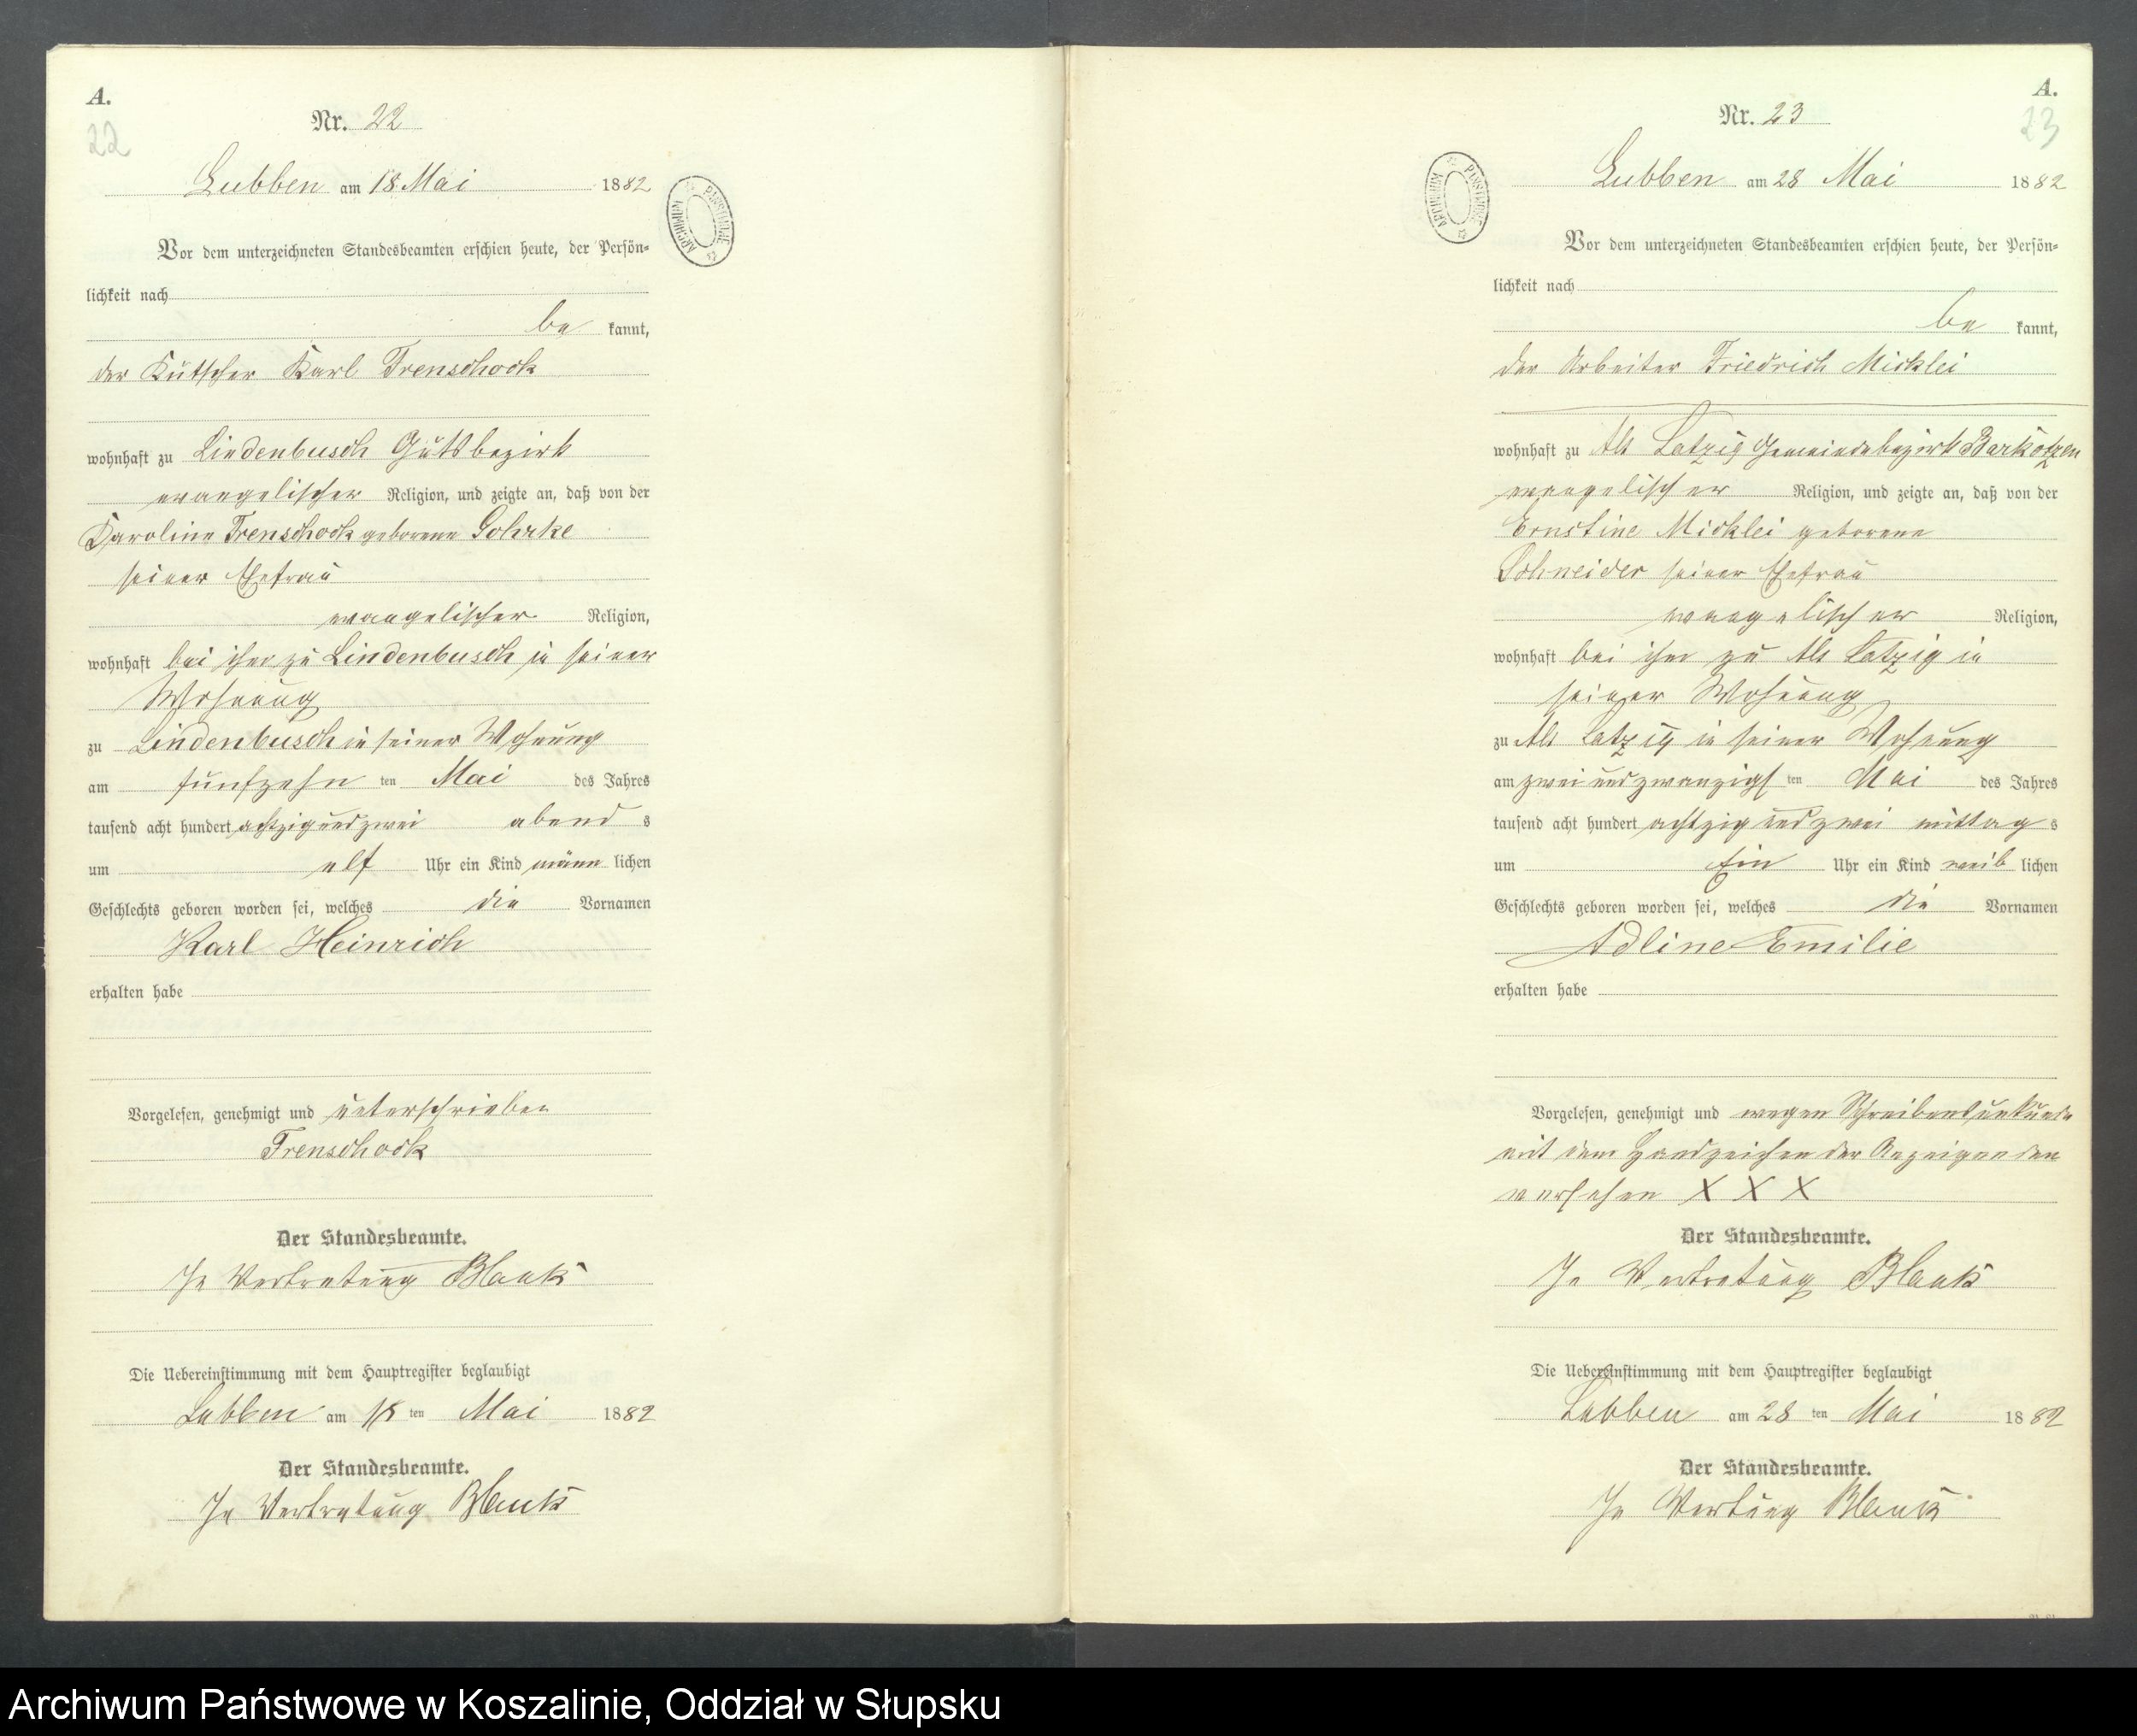 A.
22
Nr. 22
Lubben am 18 Mai 1882
Vor dem unterzeichneten Standesbeamten erschien heute, der Persön-
lichkeit nach
be kannt,
der Kutscher Karl Trenschock
wohnhaft zu Lindenbusch Gutsbezirk
evangelischer Religion, und zeigte an, daß von der
Karoline Trenschock geborene Gohrke
seiner Ehefrau
evangelischer Religion,
wohnhaft bei ihm zu Lindenbusch in seiner
Wohnung
zu Lindenbusch in seiner Wohnung
am fünfzehn ten Mai des Jahres
tausend acht hundert achtzig und zwei abend s
um elf Uhr ein Kind männ lichen
Geschlechts geboren worden sei, welches die Vornamen
Karl Heinrich
erhalten habe
Vorgelesen, genehmigt und unterschrieben
Trenschock
Der Standesbeamte.
In Vertretung Blank
Die Uebereinstimmung mit dem Hauptregister beglaubigt
Lubben am 18 ten Mai 1882
Der Standesbeamte.
In Vertretung Blank
ARCHIWUM PAŃSTWOWE
A.
23
Nr. 23
Lubben am 28 Mai 1882
Vor dem unterzeichneten Standesbeamten erschien heute, der Persön-
lichkeit nach
be kannt,
der Arbeiter Friedrich Micklei
wohnhaft zu Alt Latzig Gemeindebezirk Barkotzen
evangelischer Religion, und zeigte an, daß von der
Ernstine Micklei geborene
Schneider seiner Ehefrau
evangelischer Religion,
wohnhaft bei ihm zu Alt Latzig in
seiner Wohnung
zu Alt Latzig in seiner Wohnung
am zwei und zwanzigs ten Mai des Jahres
tausend acht hundert achtzig und zwei mittag s
um Ein Uhr ein Kind weib lichen
Geschlechts geboren worden sei, welches die Vornamen
Adline Emilie
erhalten habe
Vorgelesen, genehmigt und wegen Schreibensunkunde
mit dem Handzeichen des Anzeigenden
versehen X X X
Der Standesbeamte.
In Vertretung Blank
Die Uebereinstimmung mit dem Hauptregister beglaubigt
Lubben am 28 ten Mai 1882
Der Standesbeamte.
In Vertung Blank
ARCHIWUM PAŃSTWOWE
Archiwum Państwowe w Koszalinie, Oddział w Słupsku